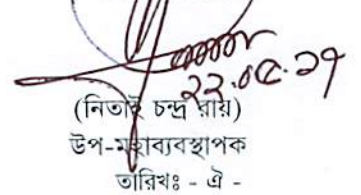 ২২.০৫.১৭
(নিতাই চন্দ্র রায়)
উপ-মহাব্যবস্থাপক
তারিখঃ - ঐ -